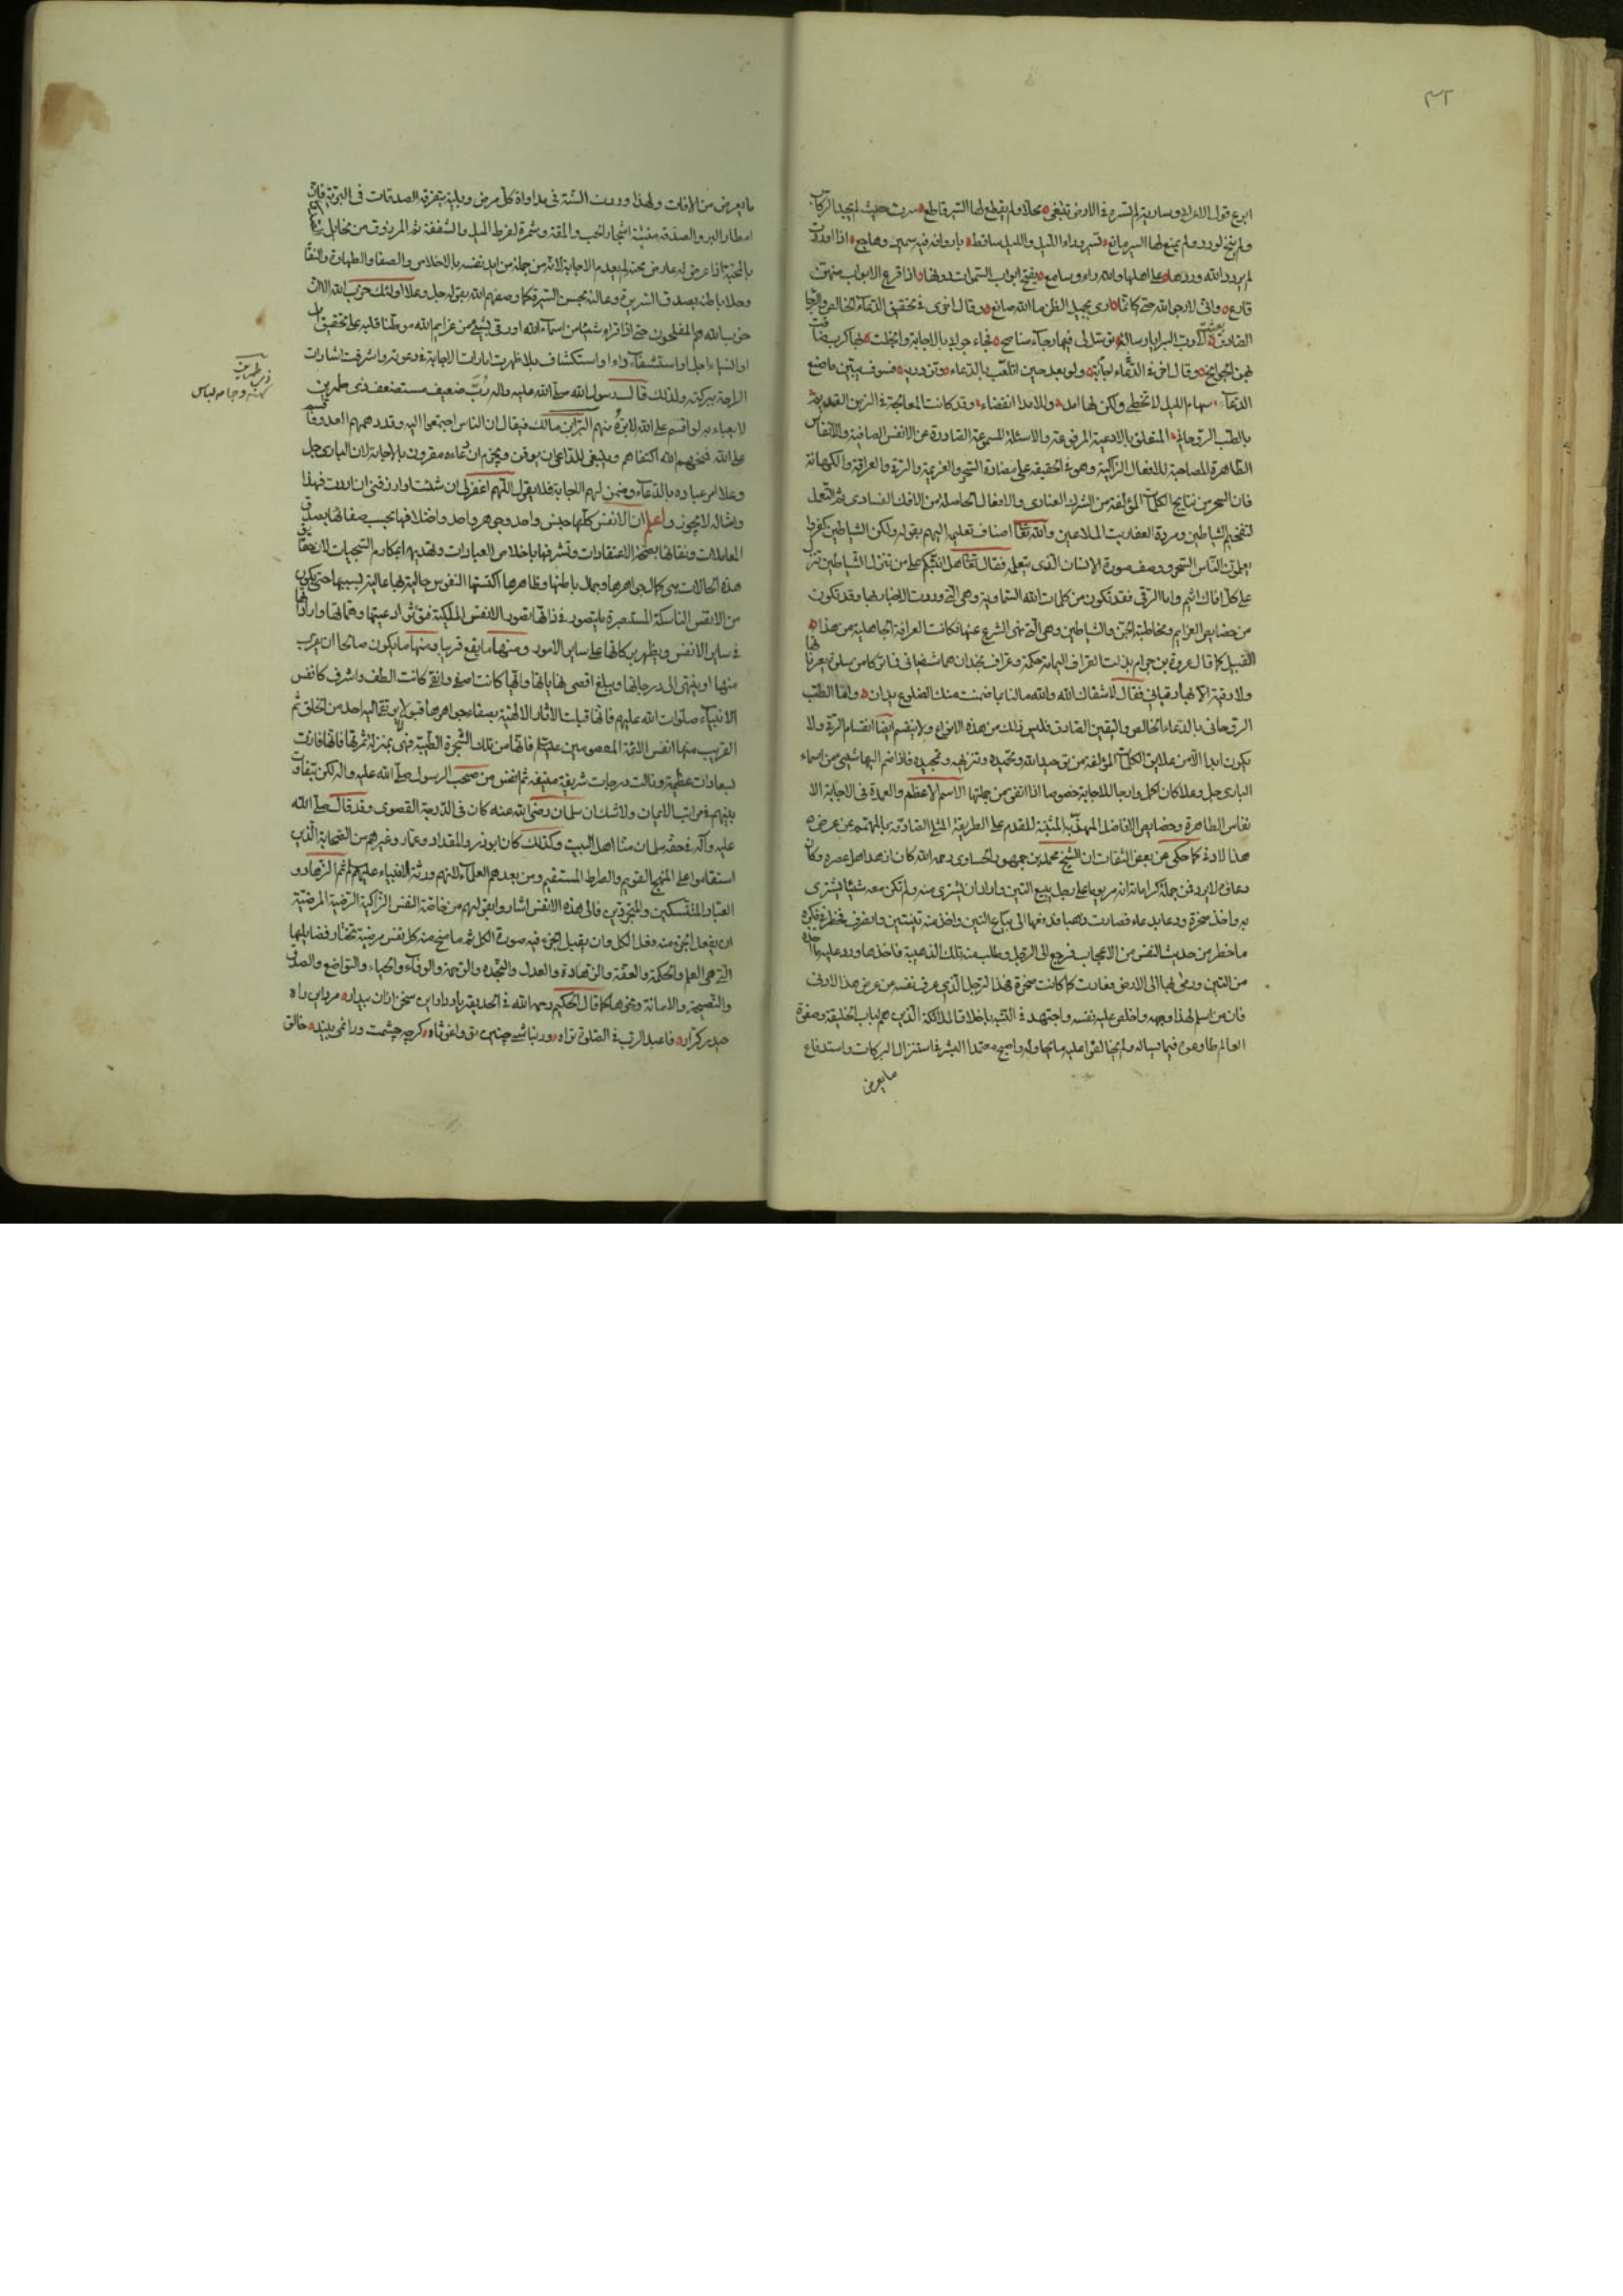 ٣٢
ابرع قول الاعرابي وسارية لم تسر في الارض تبتغي محلا ولم يقطع لها السير قاطع سرت حيث لم يحد الركاب
ولم ينخ لورد ولم يمنع لها السير مانع تسير وراء الليل والليل ساقط باروافه فيه سمير وهاجع اذا اوردت
لم يردد الله وردها على اهلها والله راء وسامع يفتح ابواب السموات دونها اذا قرع الابواب منهن
قارع واني لارجو الله حتى كانما ارى بجميل الظن ما الله صانع وقال اخرى في تحقيق الدعاء الخالص والرجا
الصادق الا رب البرايا رسالة فجاء جوابه بالاجابة وانجلت بها كرب ضاقت
بهن الجوانح وقال اخر في الدعاء اتلعب بالدعاء وتزدريه فسوف يبين ما صنع
الدعاء سهام الليل لا تخطي ولكن لها امد وللامد انقضاء وقد كانت المعالجة في الزمن القديم
بالطب الروحاني المتعلق بالادعية المرفوعة والاسئلة المسموعة الصادرة عن الانفس الصافية والانفاس
الطاهرة المصاحبة للافعال الزاكية وهو في الحقيقة على مضادة السحر والعزيمة والرقية والعرافة والكهانة
فان السحر من نتايج الكلمات المؤلفة من الشرك العنادي والافعال الحاصلة من الافك الفسادي ثم التعلـ
الشياطين ومردة العفاريت الملاعين والله تعالى اضاف تعليم اليهم بقوله ولكن الشياطين كفروا
يعلمون الناس السحر ووصف صورة الانسان الذي يتعلمه فقال تعالى هل انبئكم على من تنزل الشياطين تنزل
على كل افاك اثيم واما الرقى فقد تكون من كلمات الله السماوية وهي التي وردت الاخبار بها وقد تكون
من خصايص العزايم ومخاطبة الجن والشياطين وهي التي نهى الشرع عنها وكانت العرافة الجاهلية من هذا
القبيل كما قال عروة بن حزام بذلت لعراف اليمامة حكمه وعراف نجد ان هما شفياني فما تركا من سلوة يعرفانها
ولا رقية الا بها رقياني فقالا شفاك الله والله ما لنا بما ضمنت منك الضلوع يدان واما الطب
الروحاني بالدعاء الخالص واليقين الصادق فليس ذلك من هذه الانواع ولا ينقسم ايضا انقسام الرقية ولا
يكون ابدا الا من علايق الكلمات المؤلفة من توحيد الله وتحميده وتنزيهه وتمجيده فاذا ضم اليها شيئ من اسماء
الباري جل وعلا كان اكمل وارجا للاجابة خصوصا اذا اتفق من جملتها الاسم الاعظم والعمدة في الاجابة الا
نفاس الطاهرة وخصايص الافاضل المهذبة المثبتة للقدم على الطريقة المثلى الصادقة بالمهتم عن عرض
هذا الادنى كما حكي عن بعض الثقات ان الشيخ محمد بن جمهور الحساوي رحمه الله كان ازهد اهل عصره وكان
دعاؤه لا يرد فمن جملة كراماته انه مر يوما على رجل يبيع التين واراد ان يشترى منه ولم تكن معه شيئا يشترى
به واخذ صخرة ودعا بدعاء فصارت ذهبا فدفعها الى بياع التين واخذ منه تينتين وانصرف فخطر في فكره
ما خطر من حديث النفس من الاعجاب فرجع الى الرجل وطلب منه تلك الذهبية فاخذها ورد عليه ما اخذه
من التين ورمى بها الى الارض وعادت كما كانت صخرة فهذا الرجل الذي عرف نفسه من عرض هذا الادنى
فان من اسلم لهذا وجهه واخلص عليه نفسه واجتهد في التشبه باخلاق الملائكة الذين هم لباب الخليقة وصفوة
العالم طاوعوه فيما يساله ولم يخالفوا عليه ما يحاوله واصبح معتمد البشر في استنزال البركات واستدفاع
ما يعرض
ما يعرض من الافات ولهذا وردت السنة في مداواة كل مرض وبلية بتفرقة الصدقات في البرية فان
امطار البر والصدقة منبتة اشجار الحب والمقة ومثمرة لفرط الميل والشفقة ثم المرزوق من مخايل
بالمحبة اذا عرض له عارض محنة لم يعدم الاجابة لانه من جملة من ايد نفسه بالاخلاص والصفا والطهارة والنقا
وحلا باطنه بصدق السريرة وعالنه بحسن السيرة كما وصفهم الله بقوله جل وعلا اولئك حزب الله الا ان
حزب الله هم المفلحون حتى اذا قراء شيئا من اسماء الله او رقى بشيئ من عزايم الله موطنا قلبه على تحقيق
او استشفاء داء او استكشاف بلا ظهرت امارات الاجابة في دعوته واشرقت اشارات
الراحة ببركته ولذلك قال رسول الله صلى الله عليه واله رب ضعيف مستضعف ذي طمرين
لا يعباء به لو اقسم على الله لابره منهم البراء بن مالك فيقال ان الناس اجتمعوا اليه وقد دهمهم العدو فاقسم
على الله فمنحهم الله اكتافهم وينبغي للداعي ان يوقن ويجزم ان دعاءه مقرون بالاجابة لان الباري جل
وعلا امر عباده بالدعاء وضمن لهم الاجابة فلا يقول اللهم اغفر لي ان شئت او ارزقني ان اردت فهذا
وامثاله لا يجوز واعلم ان الانفس كلها جنس واحد وجوهر واحد واختلافها بحسب صفائها بصدق
المعاملات ونقائها بصحة الاعتقادات وتشرفها باخلاص العبادات وتهذيبها بمكارم السجيات لان حقايق
هذه الحالات هي كمال جواهرها وجمال باطنها وظاهرها اكتستها النفوس حالية بها عالية بسببها حتى يكون
من الانفس الناسكة المستبصرة ما يتصور في ذاتها تصور الانفس الملكية فتؤثر ادعيتها وهماتها واراداتها
في ساير الانفس ويظهر بركاتها على ساير الامور ومنها ما يقع قريبا ومنها ما يكون صالحا ان يقرب
منها او ينتهي الى درجاتها ويبلغ اقصى نهاياتها وايها كانت اصفى وانقى كانت الطف واشرف كانفس
الانبياء صلوات الله عليهم فانها قبلت الاثار الالهية بصفاء جواهرها قبولا لا يرتقي اليه احد من الخلق ثم
القريب منها انفس الائمة المعصومين عليهم السلام فانها من تلك الشجرة الطيبة فهي بمنزلة ثمرتها فانها فازت
بسعادات عظيمة ونالت درجات شريفة منيفة ثم انفس من صحب الرسول صلى الله عليه واله لكن بتفاوت
بينهم في مراتب الايمان ولا شك ان سلمان رضي الله عنه كان في الدرجة القصوى وقد قال صلى الله
عليه وآله في حقه سلمان منا اهل البيت وكذلك كان ابوذر والمقداد وعمار وغيرهم من الصحابة الذين
استقاموا على المنهج القويم والصراط المستقيم ومن بعدهم العلماء لانهم ورثة الانبياء عليهم السلام ثم الزهاد و
العباد المتنسكين والمتجردين فالى هذه الانفس اشاروا بقولهم من خاصة النفس الزاكية الرضية المرضية
ان يفعل الجزء منه فعل الكل وان يقبل الجزء فيه صورة الكل ثم ما سنح منه كل نفس مرضية تختار فضايلها
التي هي العلم والحكمة والعفة والزهادة والعدل والنجدة والرحمة والوفاء والحياء والتواضع والصدق
والنصيحة والامانة ونحوها كما قال الحكيم رحمه الله في الحديقة باز داد اين سخن ازان بيدار مرد اين راه
حيدر كرار فاعبد الرب في الصلوة تراه ور نباشى چنين تو واغوثاه گرچه چشمت ورا نمى بيند خالق
كهنه وجامه لباس